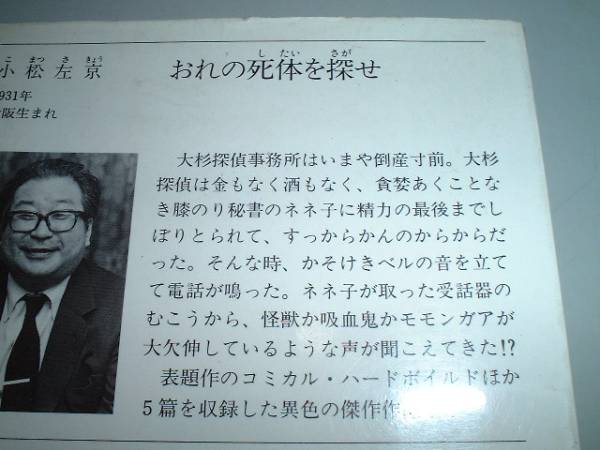 こ まつ さ きょう
小松左京
931年
阪生まれ
し たい さが
おれの死体を探せ
大杉探偵事務所はいまや倒産寸前。大杉
探偵は金もなく酒もなく、貪婪あくことな
き膝のり秘書のネネ子に精力の最後までし
ぼりとられて、すっからかんのからからだ
った。そんな時、かそけきベルの音を立て
て電話が鳴った。ネネ子が取った受話器の
むこうから、怪獣か吸血鬼かモモンガアが
大欠伸しているような声が聞こえてきた!?
表題作のコミカル・ハードボイルドほか
5篇を収録した異色の傑作作